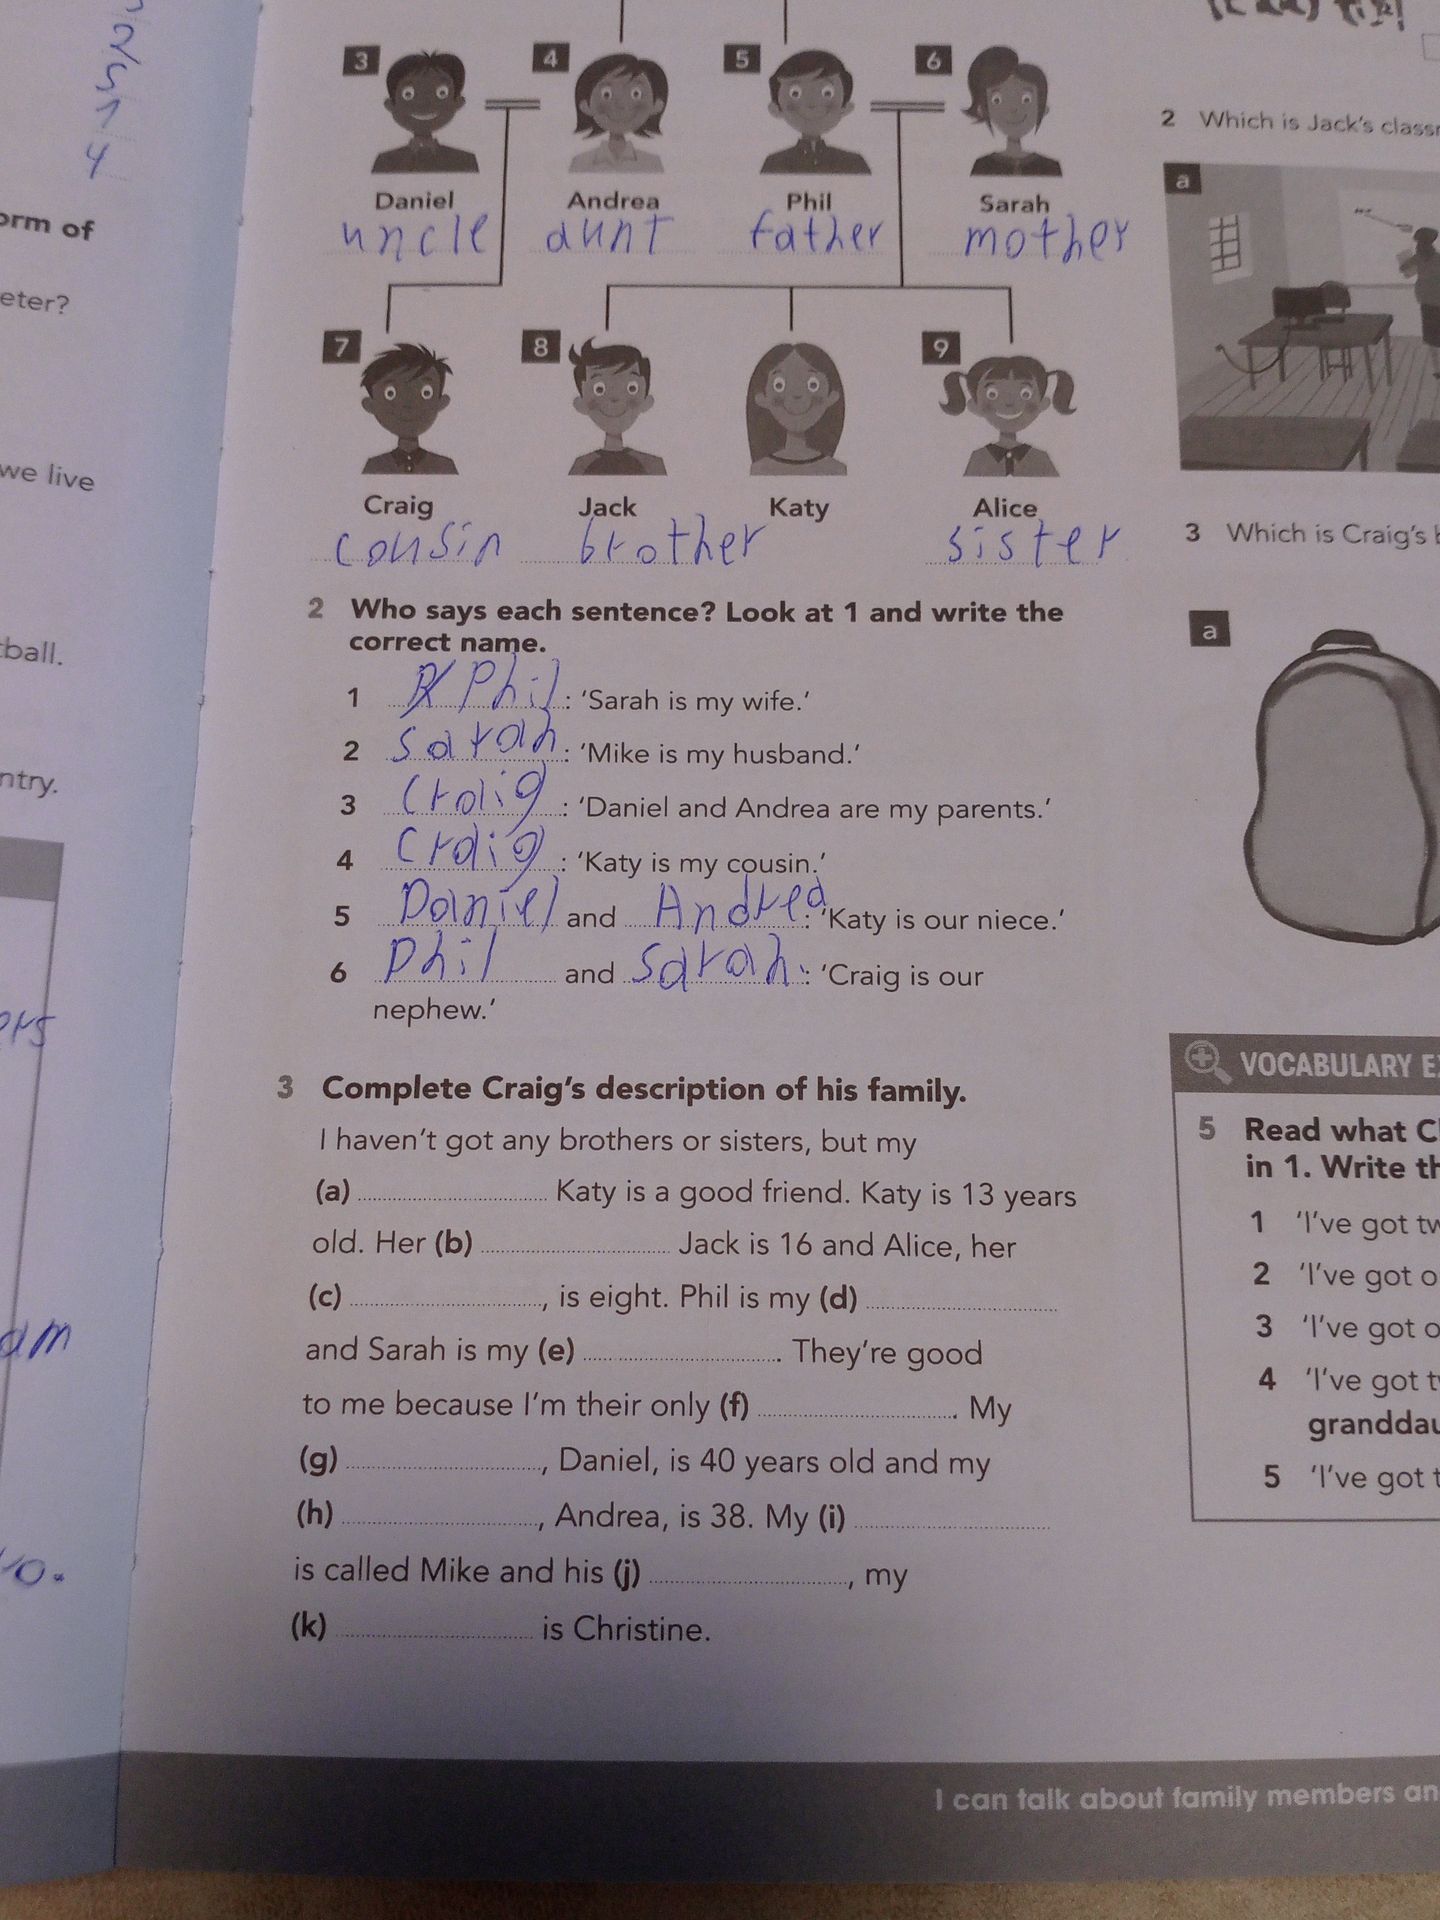 3 4 5 6
Daniel Andrea Phil Sarah
uncle aunt father mother
7 8 9
Craig Jack Katy Alice
cousin brother sister
2 Who says each sentence? Look at 1 and write the
correct name.
1 Phil: 'Sarah is my wife.'
2 Sarah: 'Mike is my husband.'
3 Craig: 'Daniel and Andrea are my parents.'
4 Craig: 'Katy is my cousin.'
5 Daniel and Andrea: 'Katy is our niece.'
6 Phil and Sarah: 'Craig is our
nephew.'
3 Complete Craig's description of his family.
I haven't got any brothers or sisters, but my
(a) Katy is a good friend. Katy is 13 years
old. Her (b) Jack is 16 and Alice, her
(c) , is eight. Phil is my (d)
and Sarah is my (e) . They're good
to me because I'm their only (f) . My
(g) , Daniel, is 40 years old and my
(h) , Andrea, is 38. My (i)
is called Mike and his (j) , my
(k) is Christine.
I can talk about family members an
2 Which is Jack's classr
a
3 Which is Craig's b
a
VOCABULARY E
5 Read what C
in 1. Write th
1 'I've got tw
2 'I've got o
3 'I've got o
4 'I've got t
granddau
5 'I've got t
orm of
eter?
we live
tball.
ntry.
ers
am